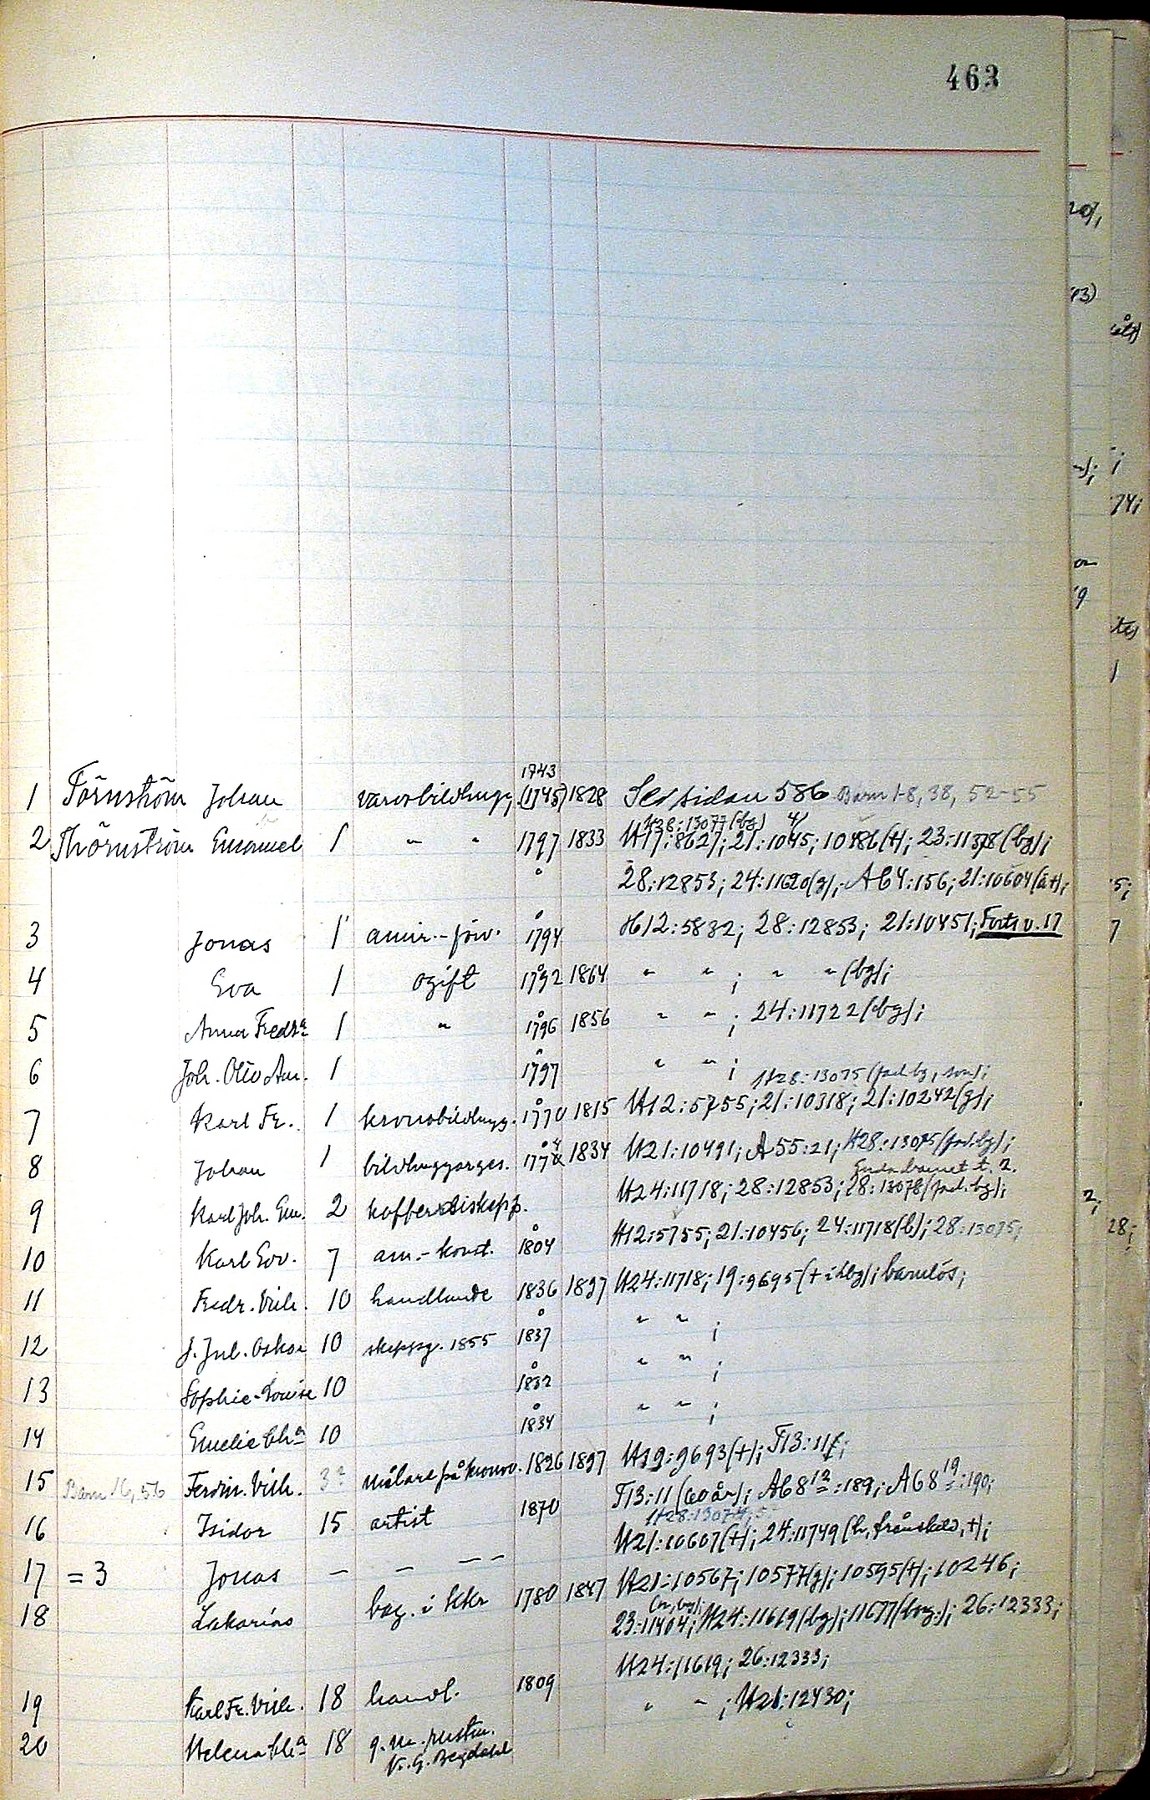 463
1 Törnström Johan varvsbildhugg. 1743 (1745) 1828 Se sidan 586 Barn 1-8, 38, 52-55
2 Thörnström Emanuel 1 " " 1797 1833 H17:8627; 21:1045; 10486(+); 23:11378(bg);
H28:13077(bg)
28:12853; 24:11620(g); A64:156; 21:10604(a+);
3 Jonas 1 amir.-förv. 1794 H12:5832; 28:12853; 21:10451; Forts v. 17
4 Eva 1 ogift 1792 1864 " " ; " " (bg);
5 Anna Fredr:a 1 " 1796 1856 " " ; 24:11722(bg);
6 Joh. Oliv Am. 1 1797 " " ;
H28:13075 (fad. bg, son);
7 Karl Fr. 1 kronobildhugg. 1770 1815 H12:5755; 21:10318; 21:10242(g);
8 Johan 1 bildhuggarges. 1834 H21:10491; A55:21; H28:13075(fad. bg);
Enda barnet t. 2.
9 Karl Joh. Em. 2 kofferdiskepp. H24:11718; 28:12853; 28:13078(fad. bg);
10 Karl Edv. 7 am.-konst. 1804 H12:5755; 21:10456; 24:11718(b); 28:13075;
11 Fredr. Vilh. 10 handlande 1836 1897 H24:11718; 19:9695(+ i hbg); barnlös;
12 J. Jul. Oskar 10 skeppsg. 1855 1837 " " ;
13 Sophie Lovise 10 1832 " " ;
14 Emelie Ch:a 10 1834 " " ;
15 Barn 16, 56 Ferdin. Vilh. 3? målare på kronov. 1826 1897 H19:9693(+); T13:11;
16 Isidor 15 artist 1870 T13:11 (60 år); A68 12:189; A68 19:190;
H28:13074;
17 = 3 Jonas — — — — H21:10607(+); 24:11749(h, frånskild, +);
18 Zakarias bag. i Kkr 1780 1847 H21:10567; 10577(g); 10595(+); 10246;
23:11404; H24:11619(bg); 11677(bg); 26:12333;
19 Karl Fr. Vilh. 18 handl. 1809 H24:11619; 26:12333;
20 Helena Ch:a 18 g. m. " " ; H21:12430;
V. G. Bergdahl